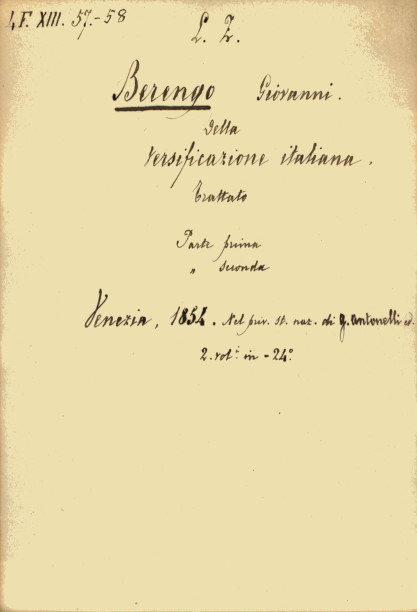 1, F. XIII. 57.-58
L. Z.
Berengo Giovanni.
Della
versificazione italiana.
Trattato
Parte prima
" seconda
Venezia, 1854. Nel priv. st. naz. di G. Antonelli ed.
2. vol.i in-24°.